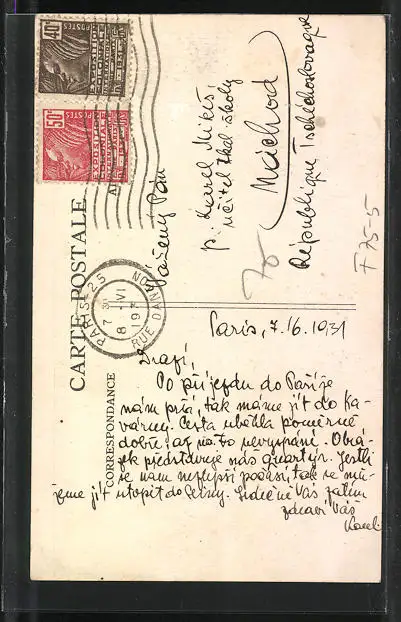 40c
POSTES
EXPOSITION
COLONIALE
INTERNATIONALE
PARIS 1931
50c
POSTES
EXPOSITION
COLONIALE
INTERNATIONALE
PARIS 1931
CARTE POSTALE
CORRESPONDANCE
PARIS-25
RUE DANTON
7 30
8 -VI
1931
Vážený Pán
p. Karel Mikeš,
učitel tkal. školy
Náchod
République Tschéchoslovaque
F75-5
Paris, 7./6. 1931
Drazí,
Po příjezdu do Paříže
nám prší, tak máme jít do ka-
várny. Cesta uběhla poměrně
dobře, až na to nevyspání. Obrá-
zek představuje náš quartýr. Jestli
se nám nezlepší počasí, tak se mů-
žeme jít utopit do Seiny. Srdečně Vás zatím
zdraví Váš
Karel